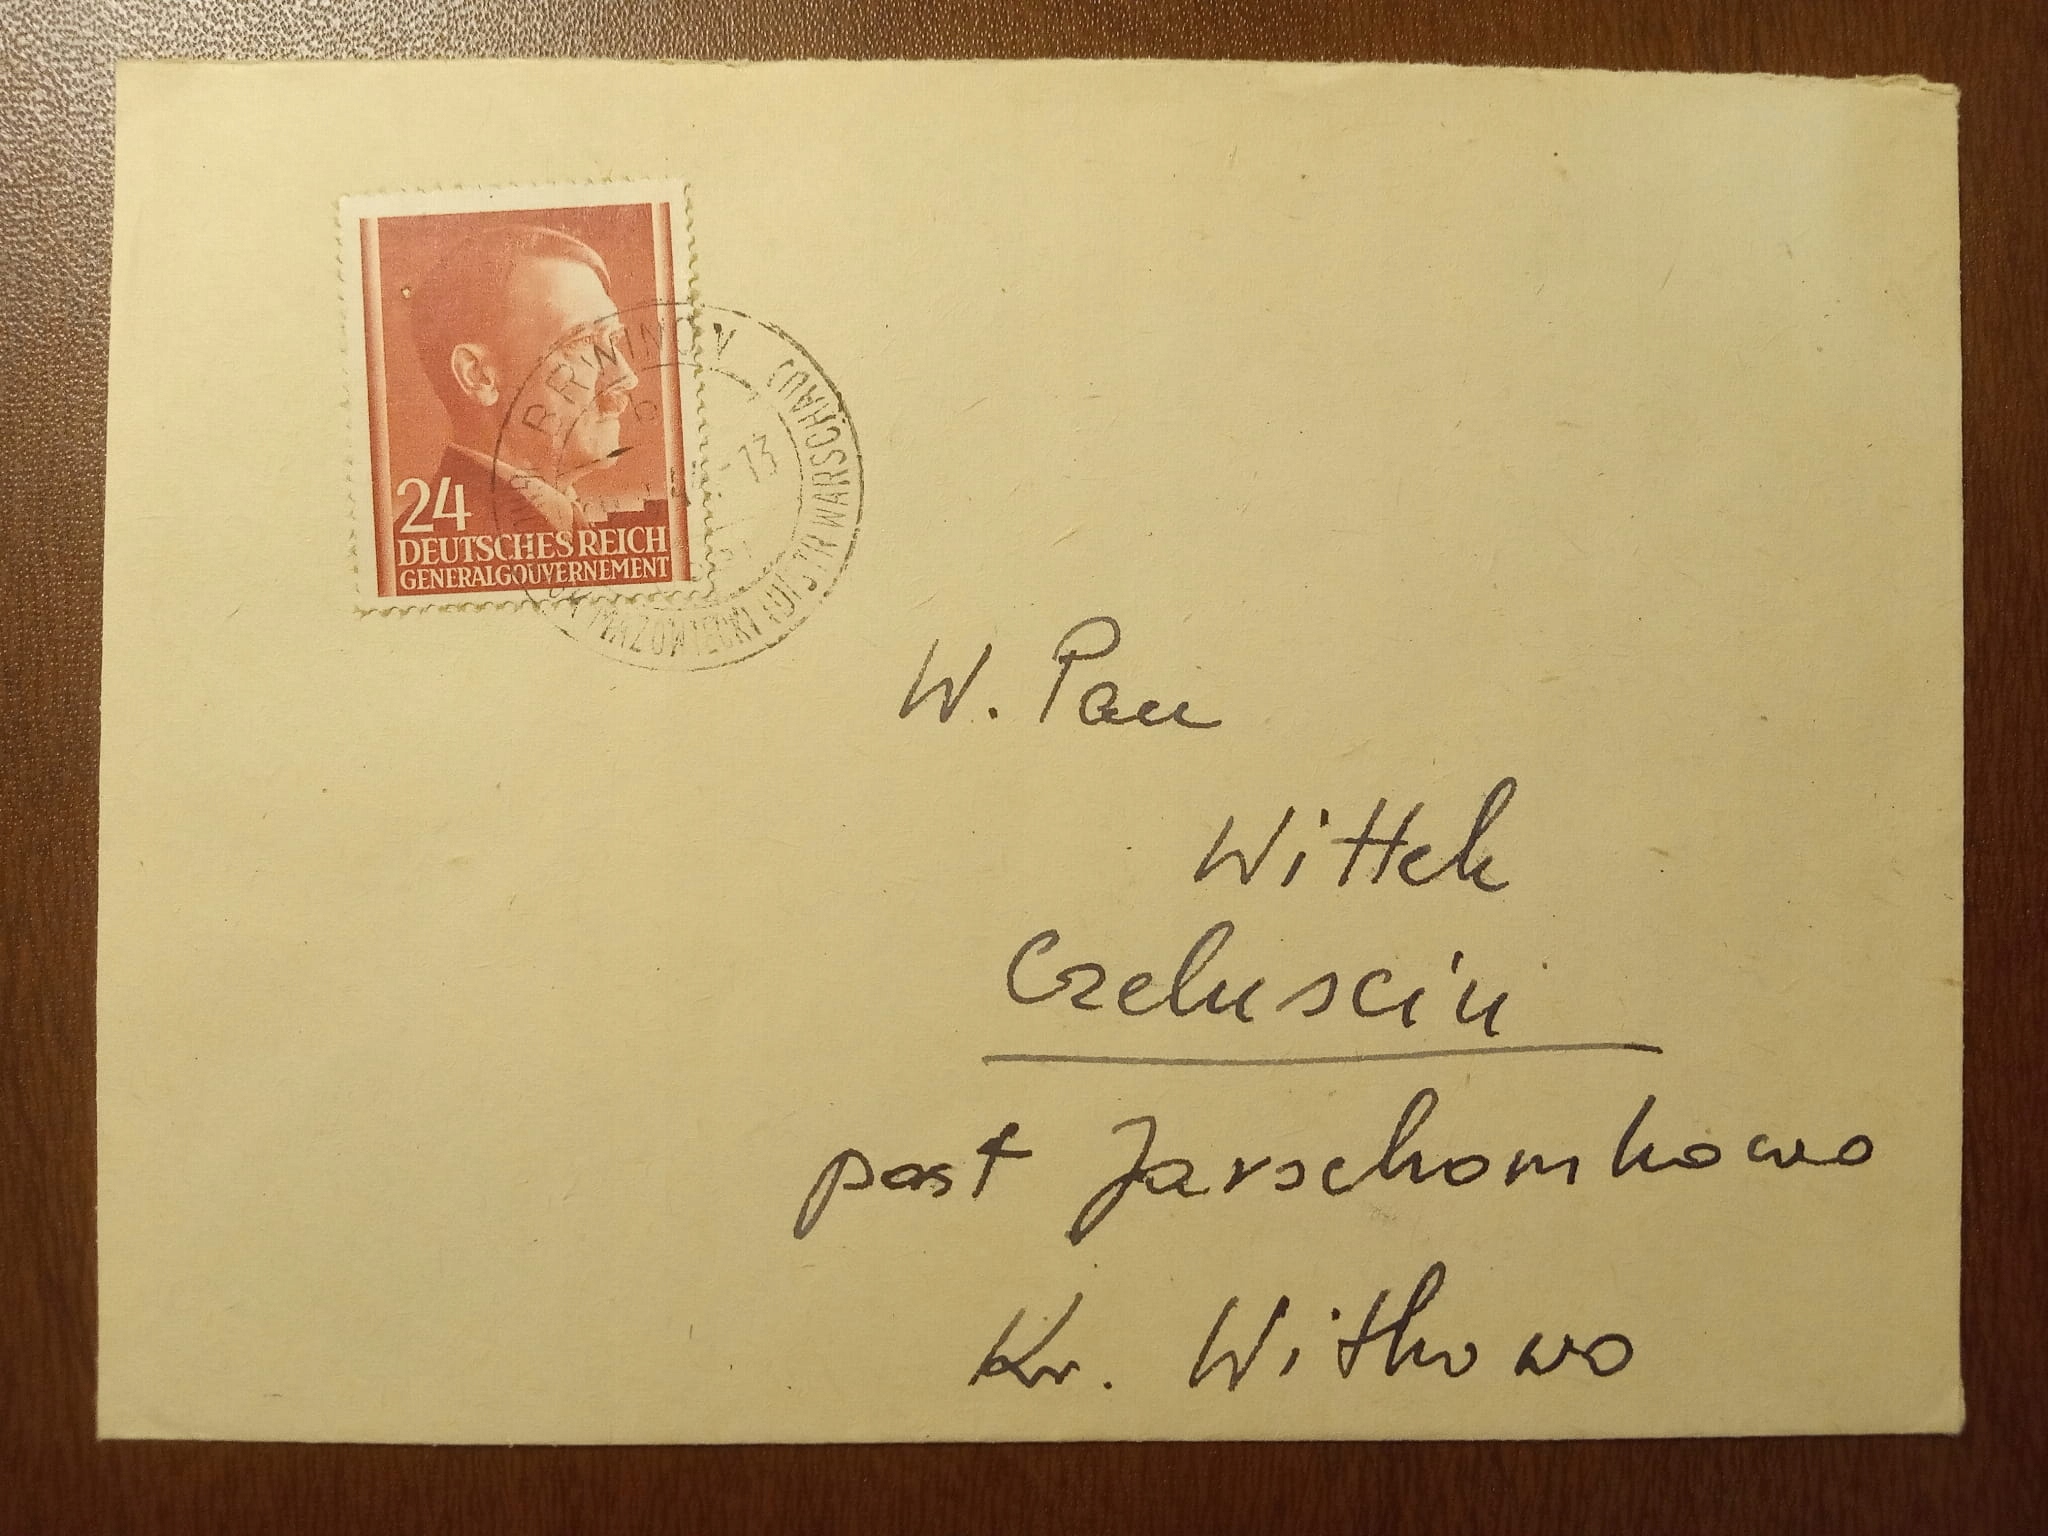 24
DEUTSCHES REICH
GENERALGOUVERNEMENT
BRWINOW
MAZOWIECKI (DISTR WARSCHAU)
13
W. Pan
Wittek
Czeluscin
post Jarschomkowo
Kr. Witkowo